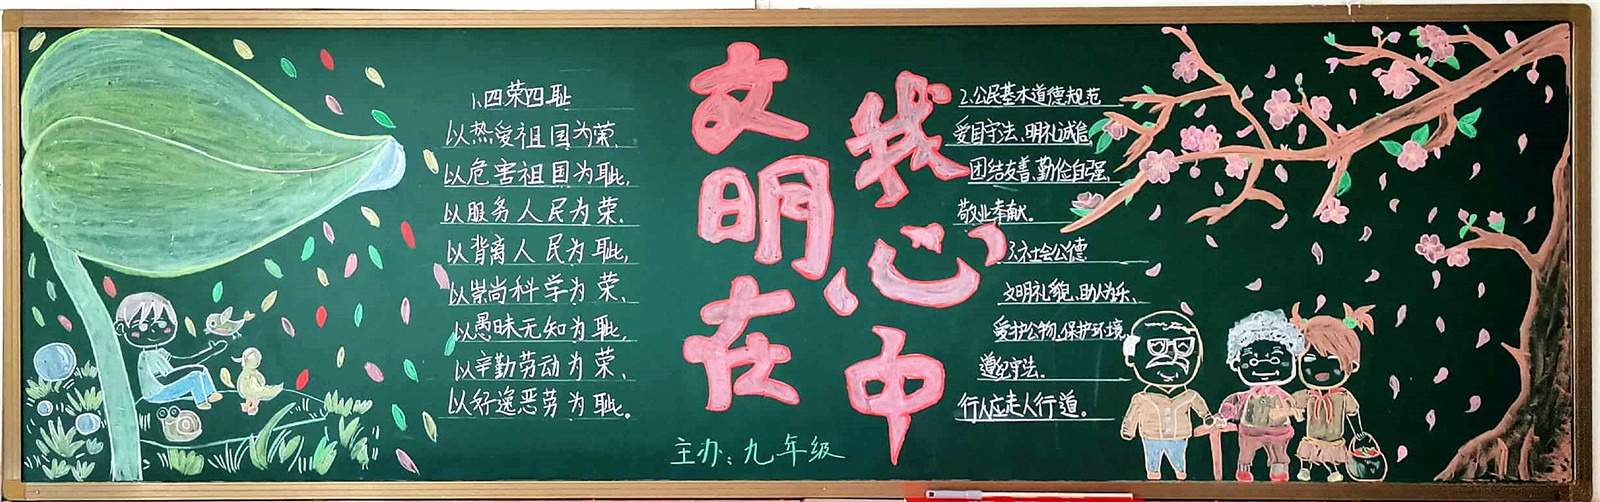 1、四荣四耻
以热爱祖国为荣、
以危害祖国为耻,
以服务人民为荣、
以背离人民为耻,
以崇尚科学为荣、
以愚昧无知为耻,
以辛勤劳动为荣、
以好逸恶劳为耻。
文明在
我心中
主办:九年级
2、公民基本道德规范
爱国守法、明礼诚信
团结友善、勤俭自强、
敬业奉献。
3、社会公德
文明礼貌、助人为乐、
爱护公物、保护环境
遵纪守法。
行人应走人行道。